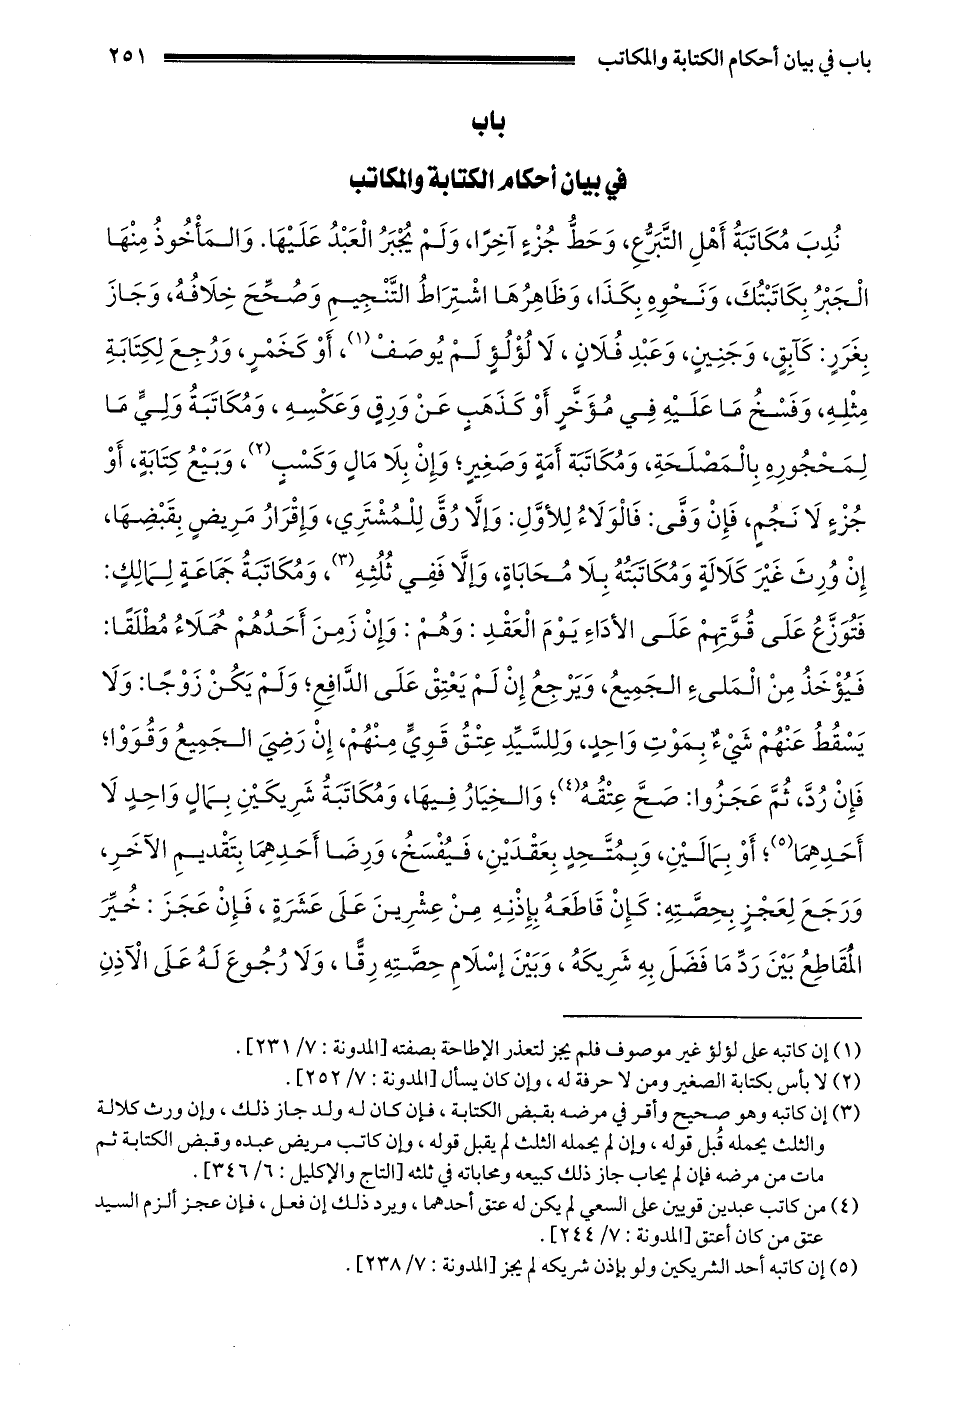 باب في بيان أحكام الكتابة والمكاتب ٢٥١
باب
في بيان أحكام الكتابة والمكاتب
نُدِبَ مُكَاتَبَةُ أَهْلِ التَّبَرُّعِ، وَحَطُّ جُزْءٍ آخِرًا، وَلَمْ يُجْبَرُ الْعَبْدُ عَلَيْهَا. وَالـمَأْخُوذُ مِنْهَا
الْجَبْرُ بِكَاتَبْتُكَ، وَنَـحْوِهِ بِكَذَا، وَظَاهِرُهَا اشْتِرَاطُ التَّنْجِيمِ وَصُحِّحَ خِلَافُهُ، وَجَازَ
بِغَرَرٍ: كَآبِقٍ، وَجَنِينٍ، وَعَبْدِ فُلَانٍ، لَا لُؤْلُؤٍ لَمْ يُوصَفْ(١)، أَوْ كَخَمْرٍ، وَرُجِعَ لِكِتَابَةِ
مِثْلِهِ، وَفَسْخُ مَا عَلَيْهِ فِي مُؤَخَّرٍ أَوْ كَذَهَبٍ عَنْ وَرِقٍ وَعَكْسِهِ، وَمُكَاتَبَةُ وَلِيٍّ مَا
لِمَحْجُورِهِ بِالْـمَصْلَحَةِ، وَمُكَاتَبَةِ أَمَةٍ وَصَغِيرٍ؛ وَإِنْ بِلَا مَالٍ وَكَسْبٍ(٢)، وَبَيْعُ كِتَابَةٍ، أَوْ
جُزْءٍ لَا نَجْمٍ، فَإِنْ وَفَّى: فَالْوَلَاءُ لِلأَوَّلِ: وَإِلَّا رُقَّ لِلْمُشْتَرِي، وَإِقْرَارُ مَرِيضٍ بِقَبْضِهَا،
إِنْ وُرِثَ غَيْرَ كَلَالَةٍ وَمُكَاتَبَتُهُ بِلَا مُـحَابَاةٍ، وَإِلَّا فَفِي ثُلُثِهِ(٣)، وَمُكَاتَبَةُ جَمَاعَةٍ لِـمَالِكٍ:
فَتُوَزَّعُ عَلَى قُوَّتِهِمْ عَلَى الأَدَاءِ يَوْمَ الْعَقْدِ: وَهُمْ: وَإِنْ زَمِنَ أَحَدُهُمْ حُمَلَاءُ مُطْلَقًا:
فَيُؤْخَذُ مِنْ الْـمَلِيءِ الْـجَمِيعُ، وَيَرْجِعُ إِنْ لَمْ يَعْتِقْ عَلَى الدَّافِعِ؛ وَلَمْ يَكُنْ زَوْجًا: وَلَا
يَسْقُطُ عَنْهُمْ شَيْءٌ بِمَوْتِ وَاحِدٍ، وَلِلسَّيِّدِ عِتْقُ قَوِيٍّ مِنْهُمْ، إِنْ رَضِيَ الْـجَمِيعُ وَقُوُوْا؛
فَإِنْ رُدَّ، ثُمَّ عَجَزُوا: صَحَّ عِتْقُهُ(٤)؛ وَالْـخِيَارُ فِيهَا، وَمُكَاتَبَةُ شَرِيكَيْنِ بِمَالٍ وَاحِدٍ لَا
أَحَدِهِمَا(٥)؛ أَوْ بِمَالَيْنِ، وَبِمُتَّحِدٍ بِعَقْدَيْنِ، فَيُفْسَخُ، وَرِضَا أَحَدِهِمَا بِتَقْدِيمِ الآخَرِ،
وَرَجَعَ لِعَجْزٍ بِحِصَّتِهِ: كَإِنْ قَاطَعَهُ بِإِذْنِهِ مِنْ عِشْرِينَ عَلَى عَشَرَةٍ، فَإِنْ عَجَزَ: خُيِّرَ
الْمُقَاطِعُ بَيْنَ رَدِّ مَا فَضَلَ بِهِ شَرِيكَهُ، وَبَيْنَ إِسْلَامِ حِصَّتِهِ رِقًّا، وَلَا رُجُوعَ لَهُ عَلَى الْآذِنِ
(١) إن كاتبه على لؤلؤ غير موصوف فلم يجز لتعذر الإطاحة بصفته [المدونة: ٧/ ٢٣١].
(٢) لا بأس بكتابة الصغير ومن لا حرفة له، وإن كان يسأل [المدونة: ٧/ ٢٥٢].
(٣) إن كاتبه وهو صحيح وأقر في مرضه بقبض الكتابة، فإن كان له ولد جاز ذلك، وإن ورث كلالة
والثلث يحمله قُبل قوله، وإن لم يحمله الثلث لم يقبل قوله، وإن كاتب مريض عبده وقبض الكتابة ثم
مات من مرضه فإن لم يحاب جاز ذلك كبيعه ومحاباته في ثلثه [التاج والإكليل: ٦/ ٣٤٦].
(٤) من كاتب عبدين قويين على السعي لم يكن له عتق أحدهما، ويرد ذلك إن فعل، فإن عجز ألزم السيد
عتق من كان أعتق [المدونة: ٧/ ٢٤٤].
(٥) إن كاتبه أحد الشريكين ولو بإذن شريكه لم يجز [المدونة: ٧/ ٢٣٨].